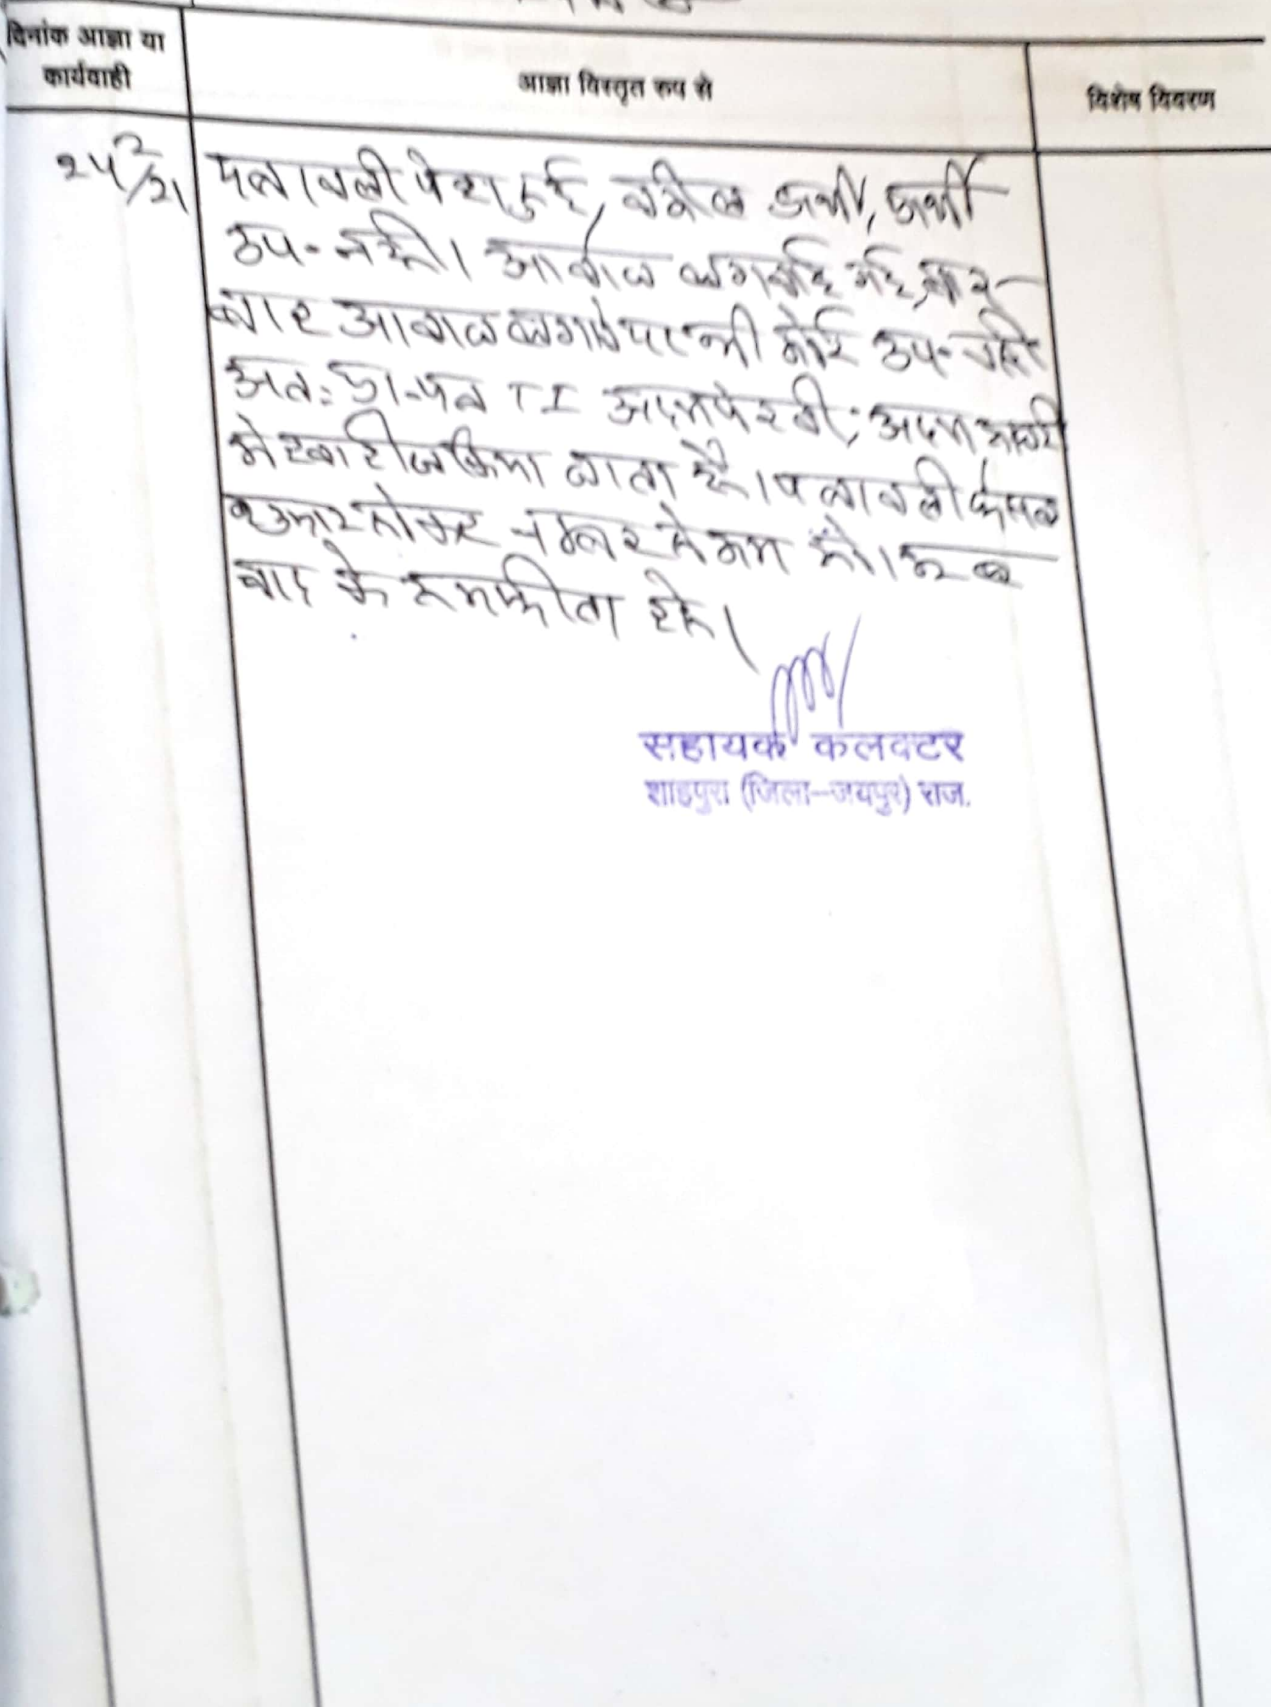 दिनांक आज्ञा या
कार्यवाही
आज्ञा विस्तृत रुप से
विशेष विवरण
२५/2/21
पत्रावली पेश हुई, वकील प्रार्थी, प्रार्थी
उप- नही। आवाज लगवाई गई, बार-
बार आवाज लगाने पर भी कोई उप- नही
अतः प्रा-पत्र TI अदमपेरवी, अदम हाजरी
मे खारीज किया जाता है। पत्रावली फैसल
शुमार होकर नम्बर से कम हो।
वाद के हमफीता रहे।
सहायक कलक्टर
शाहपुरा (जिला-जयपुर) राज.